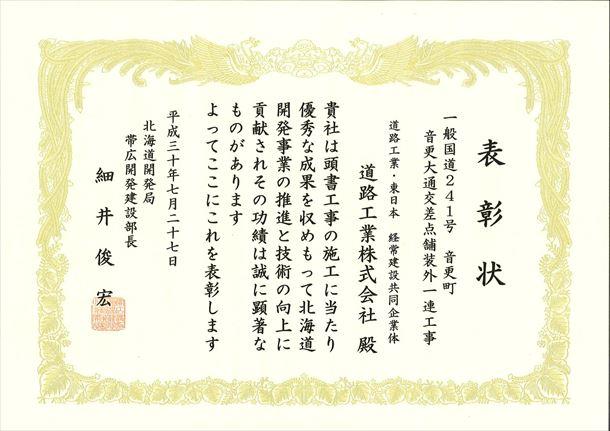 表彰状
一般国道241号 音更町
音更大通交差点舗装外一連工事
道路工業・東日本 経常建設共同企業体
道路工業株式会社 殿
貴社は頭書工事の施工に当たり
優秀な成果を収めもって北海道
開発事業の推進と技術の向上に
貢献されその功績は誠に顕著な
ものがあります
よってここにこれを表彰します
平成三十年七月二十七日
北海道開発局
帯広開発建設部長
細井俊宏